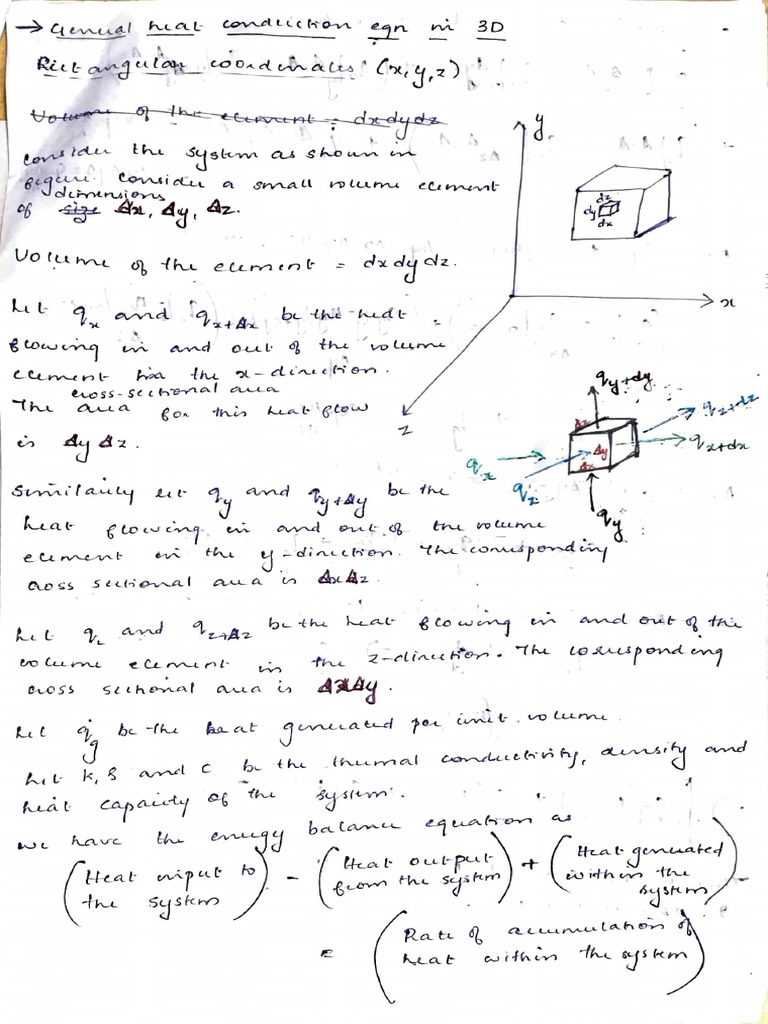 → General heat conduction eqn in 3D
Rectangular coordinates (x,y,z)
Volume of the element = dxdydz
consider the system as shown in
figure consider a small volume element
dimensions
of size Δx, Δy, Δz.
Volume of the element = dxdydz.
Let qx and qx+Δx be the heat
flowing in and out of the volume
element in the x-direction.
cross-sectional area
The area for this heat flow
is ΔyΔz.
Similarly let qy and qy+Δy be the
heat flowing in and out of the volume
element in the y-direction. The corresponding
cross sectional area is ΔxΔz.
Let qz and qz+Δz be the heat flowing in and out of the
volume element in the z-direction. The corresponding
cross sectional area is ΔxΔy.
Let qg be the heat generated per unit volume.
Let K, ρ and C be the thermal conductivity, density and
heat capacity of the system.
we have the energy balance equation as
(Heat input to the system) - (Heat output from the system) + (Heat generated within the system)
= (Rate of accumulation of heat within the system)
y
dz
dy
dx
x
z
qy+dy
qz+dz
qx+dx
Δz
Δy
Δx
qx
qz
qy